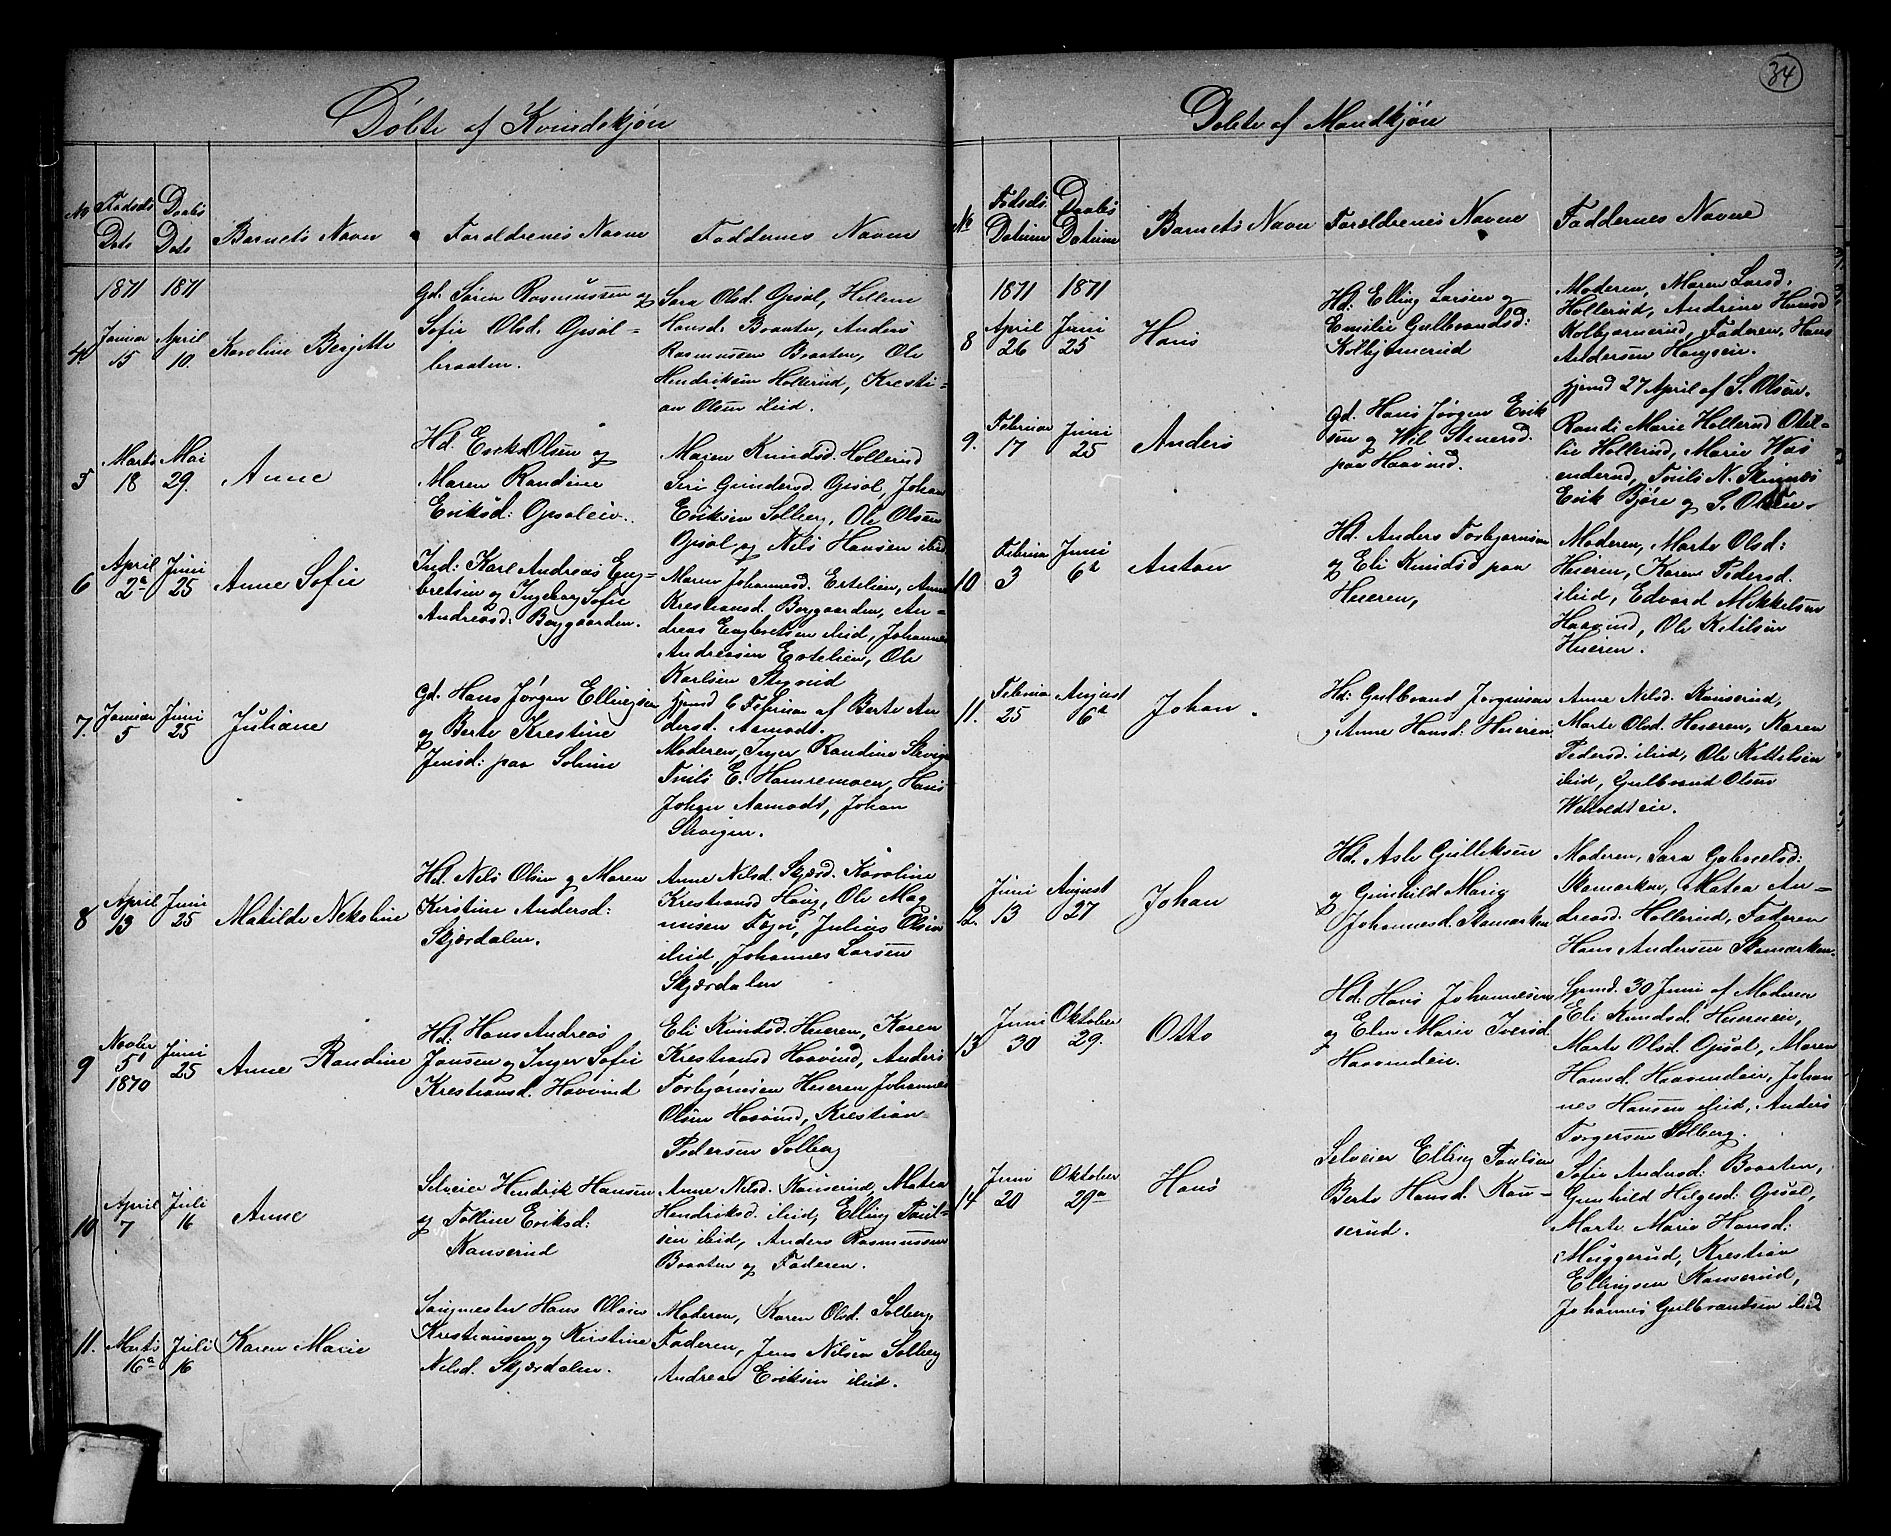 34
Döbte af Kvindekjön
No
Födsels
Dato
Daabs
Dato
Barnets Navn
Foreldrenes Navne
Faddernes Navne
1871
1871
4
Januar
15
April
10.
Karoline Berjette
Gd. Sören Rasmussen og
Sofie Olsd. Opsal-
braaten.
Sara Olsd. Opsal, Hellene
Hansd. Braaten, Anders
Rasmussen Braaten, Ole
Hendriksen Hollerud, Kresti-
an Olsen ibid.
5
Marts
18
Mai
29.
Anne
Hd. Erik Olsen og
Maren Randine
Eriksd: Opsaleie.
Maren Knudsd. Hollerud
Siri Gundersd. Opsal, Johan
Eriksen Solberg, Ole Olsen
Opsal og Nils Hansen ibid
6
April
2a
Juni
25
Anne Sofie
Ind: Karl Andreas Eng-
bretsen og Ingeborg Sofie
Andreasd. Byggaarden.
Maren Johannesd. Estelien, Anne
Krestiansd. Byggaarden, An-
dreas Engbretsen ibid, Johannes
Andreasen Estelien, Ole
Karlsen Stegvid
7.
Januar
5
Juni
25
Juliane
Gd. Hans Jörgen Ellingsen
og Berte Krestine
Jensd: paa Solume
hjemd 6 Februar af Berte An
dersd. Aamodt.
Moderen, Inger Randine Skvige
Truls E. Hamremoen, Hans
Johan Aamodt, Johan
Skvigen.
8
April
13
Juni
25
Matilde Nekoline
Hd. Nils Olsen og Maren
Kirstine Andersd:
Skjærdalen.
Anne Nilsd. Skjærd. Karoline
Krestiansd Haug, Ole Mag
nusen Togn, Julius Olsen
ibid, Johannes Larsen
Skjærdalen
9
Novber
5
1870
Juni
25
Anne Randine
Hd: Hans Andreas
Jansen og Inger Sofie
Krestiansd. Haavind
Eli Knudsd. Hieren, Karen
Krestiansd Haavind, Anders
Torbjörnsen Hieren Johannes
Olsen Haavind, Krestian
Pedersen Solberg
10
April
7
Juli
16
Anne
Selveier Hendrik Hansen
og Folline Eriksd:
Kanserud
Anne Nilsd. Kanserud, Matea
Hendriksd. ibid, Elling Paul-
sen ibid, Anders Rasmussen
Braaten og Faderen.
11.
Marts
16a
Juli
16
Karen Marie
Sagmester Hans Olaus
Krestiansen og Kirstine
Nilsd. Skjærdalen.
Moderen, Karen Olsd. Solberg,
Faderen, Jens Nilsen Solberg
Andreas Eriksen ibid.
Döbte af Mandkjön
No
Födsels
Datum
Daabs
Datum
Barnets Navn
Foreldrenes Navne
Faddernes Navne
1871
1871
8
April
26
Juni
25
Hans
Hd: Elling Larsen og
Emilie Gulbrandsd:
Kolbjørnerud
Moderen, Maren Larsd.
Hollerud, Andrine Hansd
Kolbjørnerud, Faderen, Hans
Andersen Haugseie.
9.
Februar
17
Juni
25
Anders
Gd. Hans Jörgen Erik
sen og Wil. Stenersd.
paa Haavind.
hjemd 27 April af S. Olsen.
Randi Marie Hollerud Otel-
lie Hollerud, Marie Was
enderud, Truls N. Skinnes
Erik Björe og S. Olsen.
10
Februar
3
Juni
6te
Anton
Hd. Anders Torbjørnsen
og Eli Knudsd paa
Hieren,
Moderen, Marte Olsd:
Hieren, Karen Pedersd.
ibid, Edvard Mikkelsen
Haavind, Ole Ketilsen
Hieren.
11.
Februar
25
August
6te
Johan.
Hd: Gulbrand Jörgensen
og Anne Hansd: Hieren
Anne Nilsd. Kanserud,
Marte Olsd. Hieren, Karen
Pedersd. ibid, Ole Kettelsen
ibid, Gulbrand Olsen
12.
Juni
13
August
27
Johan
Hd. Asle Gulliksen
og Gunhild Marie
Johannesd. Stamarken
Moderen, Sara Gabrielsd:
Stamarken, Matea An-
dreasd: Hollerud, Faderen
Hans Andersen Stamarken
13
Juni
30
Oktober
29.
Otto
Hd: Hans Johannesen
og Elen Marie Iversd.
Haavendeie.
hjemd. 30 Juni af Moderen
Eli Knudsd. Hiereneie,
Marte Olsd. Opsal, Maren
Hansd. Haavendeie, Johan
nes Hansen ibid, Anders
Torgersen Solberg.
14
Juni
20
Oktober
29a
Hans
Selveier Elling Paulsen
Berte Hansd. Kan-
serud.
Sofie Andersd: Braaten,
Gunhild Helgesd: Opsal,
Marte Marie Hansd:
Muggerud, Krestian
Ellingsen Kanserud,
Johannes Gulbrandsen ibid